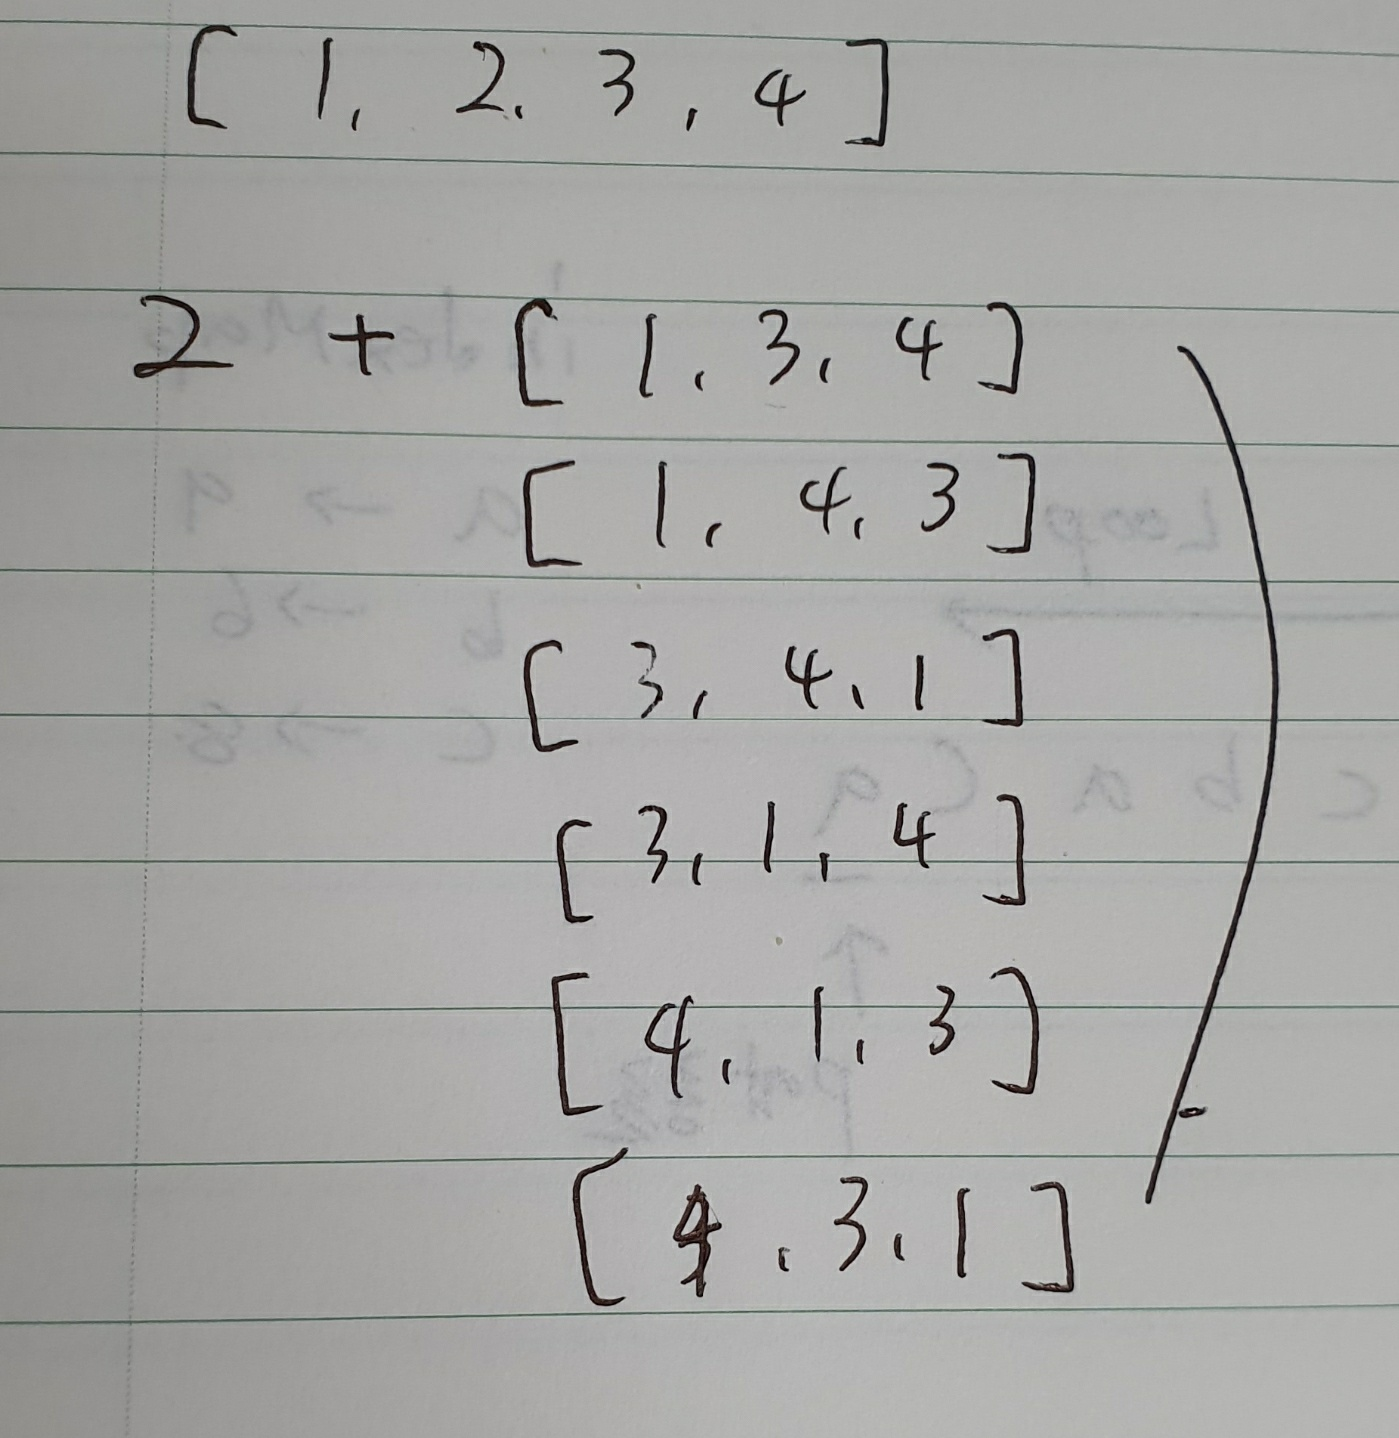 [ 1, 2, 3, 4 ]
2 + [ 1, 3, 4 ]
[ 1, 4, 3 ]
[ 3, 4, 1 ]
[ 3, 1, 4 ]
[ 4, 1, 3 ]
[ 4, 3, 1 ]